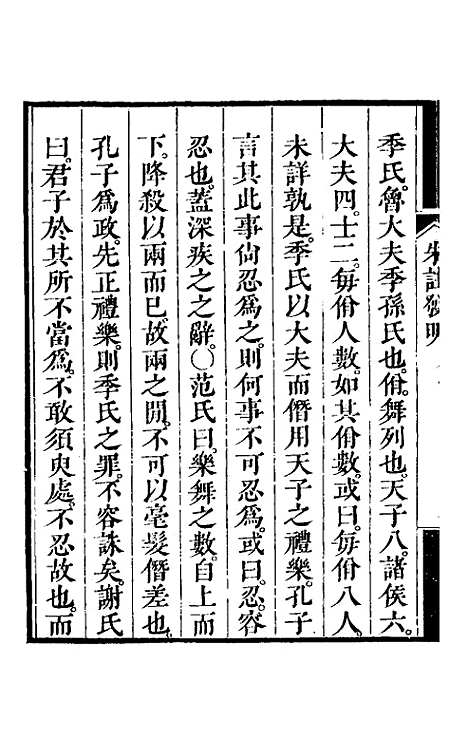 朱註發明
季氏。魯大夫季孫氏也。佾。舞列也。天子八。諸侯六。
大夫四。士二。每佾人數。如其佾數。或曰。每佾八人。
未詳孰是。季氏以大夫而僭用天子之禮樂。孔子
言其此事尙忍爲之。則何事不可忍爲。或曰。忍。容
忍也。蓋深疾之之辭。〇范氏曰。樂舞之數。自上而
下。降殺以兩而已。故兩之閒。不可以毫髮僭差也。
孔子爲政。先正禮樂。則季氏之罪。不容誅矣。謝氏
曰。君子於其所不當爲。不敢須臾處。不忍故也。而